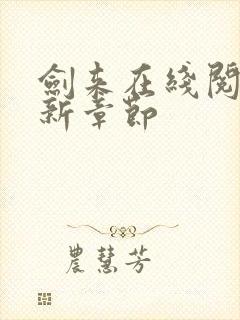 劍来在綫閱
新章節
農慧芳